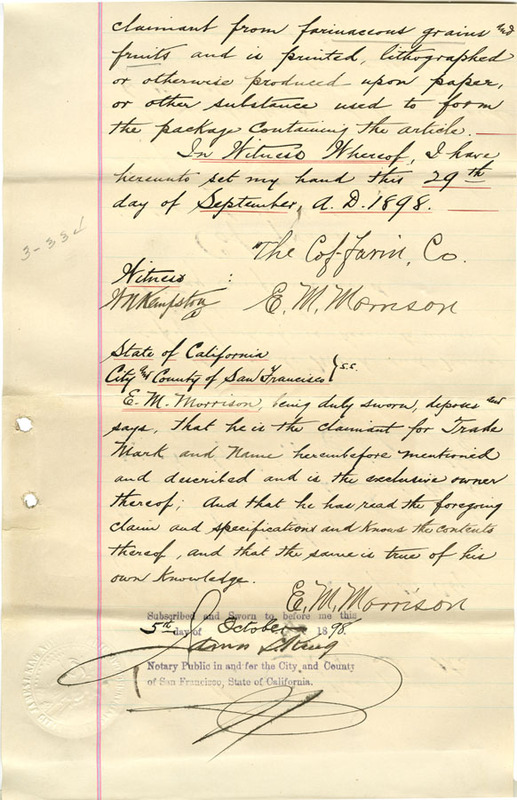 claimant from farinaceous grains and
fruits and is printed, lithographed
or otherwise produced upon paper,
or other substance used to form
the package containing the article.
In Witness Whereof, I have
hereunto set my hand this 29th
day of September, A.D. 1898.
3-334
The Cof-Farin, Co.
Witness :
E. M. Morrison
State of California
City and County of San Francisco } s.s.
E. M. Morrison, being duly sworn, deposes and
says, that he is the claimant for Trade
Mark and Name hereinbefore mentioned
and described and is the exclusive owner
thereof; And that he has read the foregoing
claim and specifications and knows the contents
thereof, and that the same is true of his
own knowledge.
E. M. Morrison
Subscribed and Sworn to before me this
5th day of October 1898.
Notary Public in and for the City and County
of San Francisco, State of California.